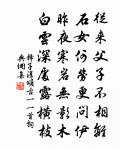 從來父子不相離
石女何勞更問伊
昨夜寒岩無影木
白雲深處露橫枝
釋子淳頌古一一首詞
典網集